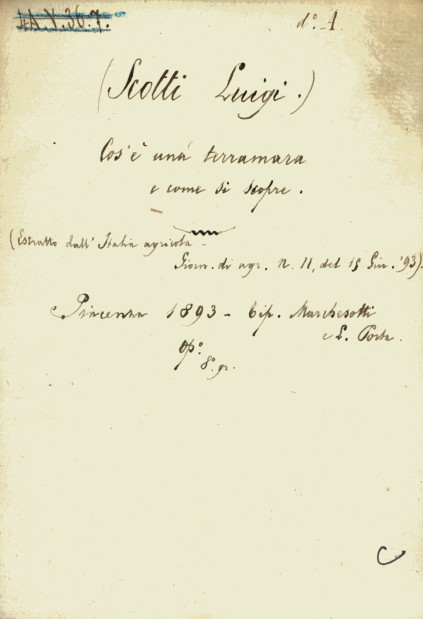 4A.V.36.7.
d.º 1
(Scotti Luigi.)
Cos'è una terramara
e come si scopre.
(Estratto dall'Italia agricola -
Giorn. di agr. N. 11, del 15 Giu. '93).
Piacenza 1893 - Tip. Marchesotti
e L. Porta.
Op.º
8.º gr.
C